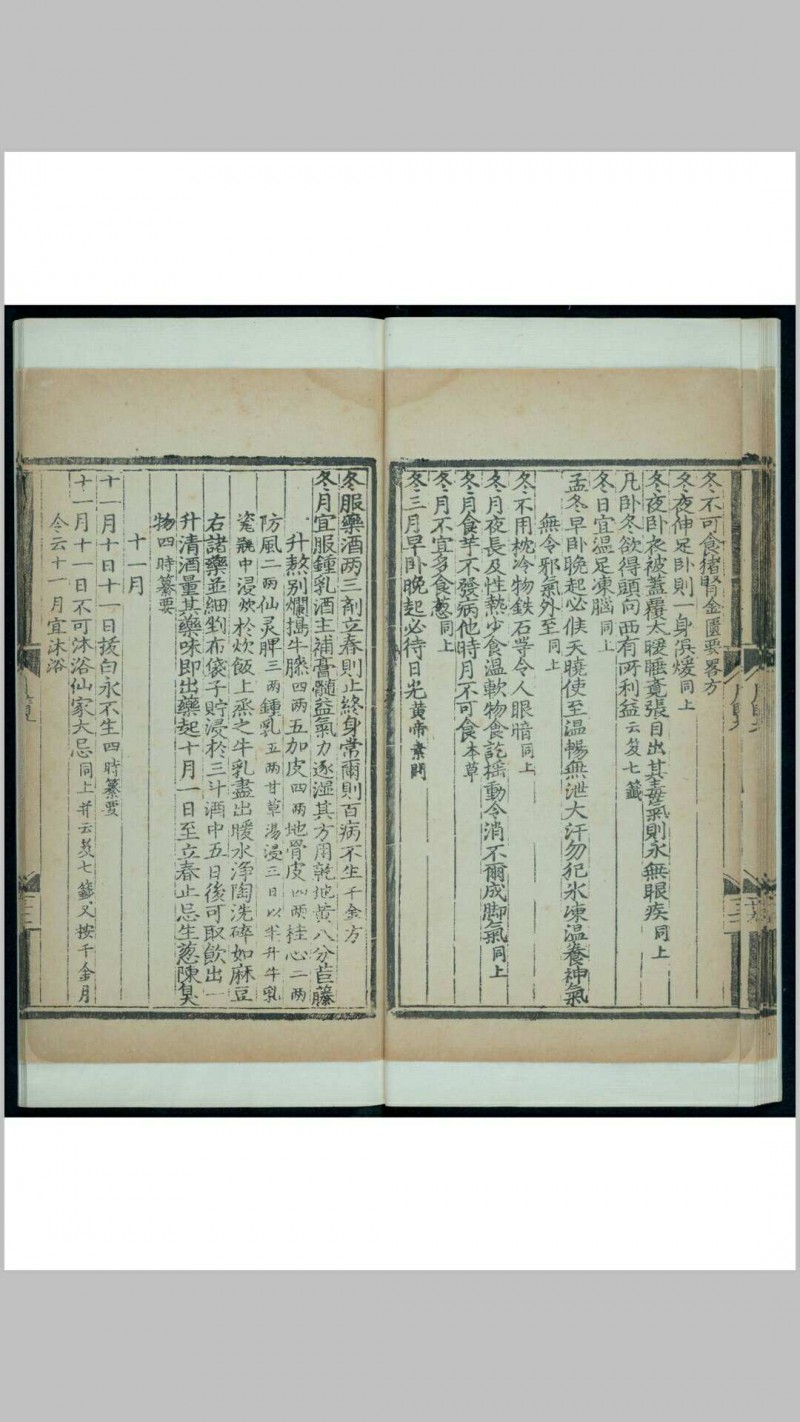 冬不可食猪腎金匱要畧方
冬夜伸足卧則一身俱煖同上
冬夜卧衣被蓋覆太暖睡竟張目出其毒氣則永無眼疾同上
凡卧冬欲得頭向西有所利益云笈七籤
冬日宜温足凍腦同上
孟冬早卧晚起必候天曉使至温暢無泄大汗勿犯氷凍温養神氣
無令邪氣外至同上
冬不用枕冷物鉄石等令人眼暗同上
冬月夜長及性熱少食温軟物食訖摇動令消不爾成脚氣同上
冬月食芋不發病他時月不可食本草
冬月不宜多食葱同上
冬三月早卧晚起必待日光黄帝素問
冬服藥酒兩三劑立春則止終身常爾則百病不生千金方
冬月宜服鍾乳酒主補膏髓益氣力逐湿其方用乾地黄八分苣藤
升熬别爛擣牛膝四两五加皮四两地骨皮四两桂心二两
防風二两仙灵脾三两鍾乳五两甘草湯浸三日以半升牛乳
瓷瓶中浸炊於炊飯上蒸之牛乳盡出暖水净陶洗碎如麻豆
右諸藥並細剉布袋子貯浸於三斗酒中五日後可取飲出一
升清酒量其藥味即出藥起十月一日至立春止忌生葱陳臭
物四時纂要
十一月
十一月十日十一日拔白永不生四時纂要
十一月十一日不可沐浴仙家大忌同上并云笈七籤又按千金月
令云十一月宜沐浴